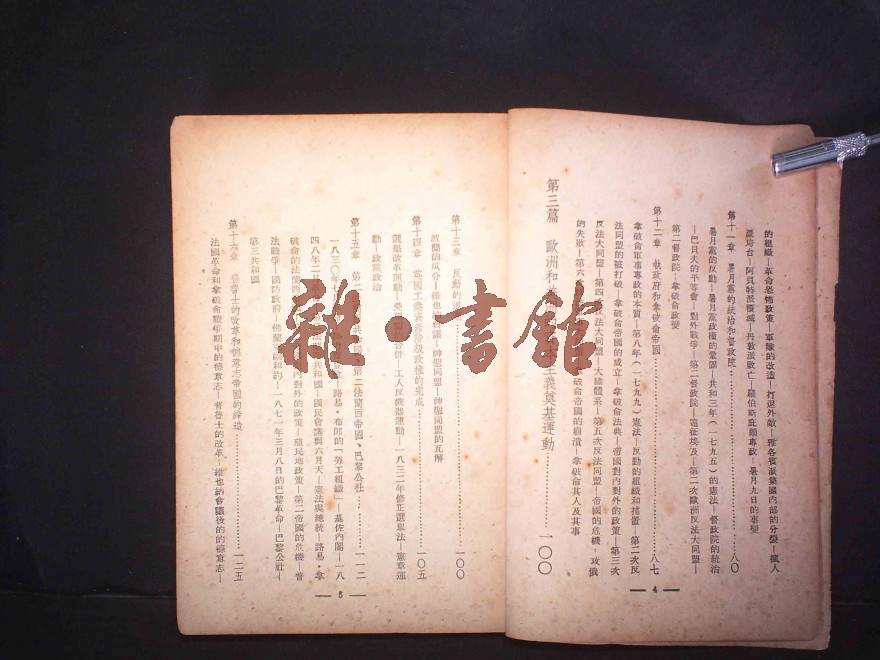 的組織—革命恐怖政策—軍隊的改造—打退外敵—雅各賓派集團內部的分裂—瘋人
派垮台—阿貝特派覆滅—丹敦派敗亡—羅伯斯庇爾專政—暑月九日的事變
第十一章 暑月黨的統治和督政院……八〇
暑月黨的反動—暑月黨政權的鞏固—共和三年（一七九五）的憲法—督政院的統治
—巴貝夫的平等會—對外戰爭—第二督政院—遠征埃及—第二次歐洲反法大同盟—
第二督政院—拿破侖政變
第十二章 執政府和拿破侖帝國……八七
拿破侖軍事專政的本質—第八年（一七九九）憲法—反動的組織和措置—第二次反
法同盟的被打破—拿破侖帝國的成立—拿破侖法典—帝國對內對外的政策—第三次
反法大同盟—第四 反法大同盟—大陸體系—第五次反法同盟—帝國的危機—攻俄
的失敗—第六 拿破侖帝國的崩潰—拿破侖其人及其事
第三篇 歐洲和 主義奠基運動……一〇〇
— 4 —
第十三章 反動的 一〇〇
波蘭的瓜分—維也納會議—神聖同盟—神聖同盟的瓦解
第十四章 英國工業資產階級政權的完成……一〇五
選舉改革運動—愛 合併—工人反機器運動—一八三二年修正選舉法—憲章運
動—政黨政治
第十五章 第二 共 第二法蘭西帝國、巴黎公社……一一二
一八三〇年七 路易・布郎的「勞工組織」—基佐內閣—一八
四八年二月 共和國—國民會議與六月天—憲法與總統—路易・拿
破侖的法 對內對外的政策—殖民地政策—第二帝國的危機—普
法戰爭—國防政府—佛蘭 和約—一八七一年三月八日的巴黎革命—巴黎公社—
第三共和國
第十六章 普魯士的改革和德意志帝國的締造……一二五
法國革命和拿破侖戰爭期中的德意志—普魯士的改革—維也納會議後的德意志—
— 5 —
雜・書館